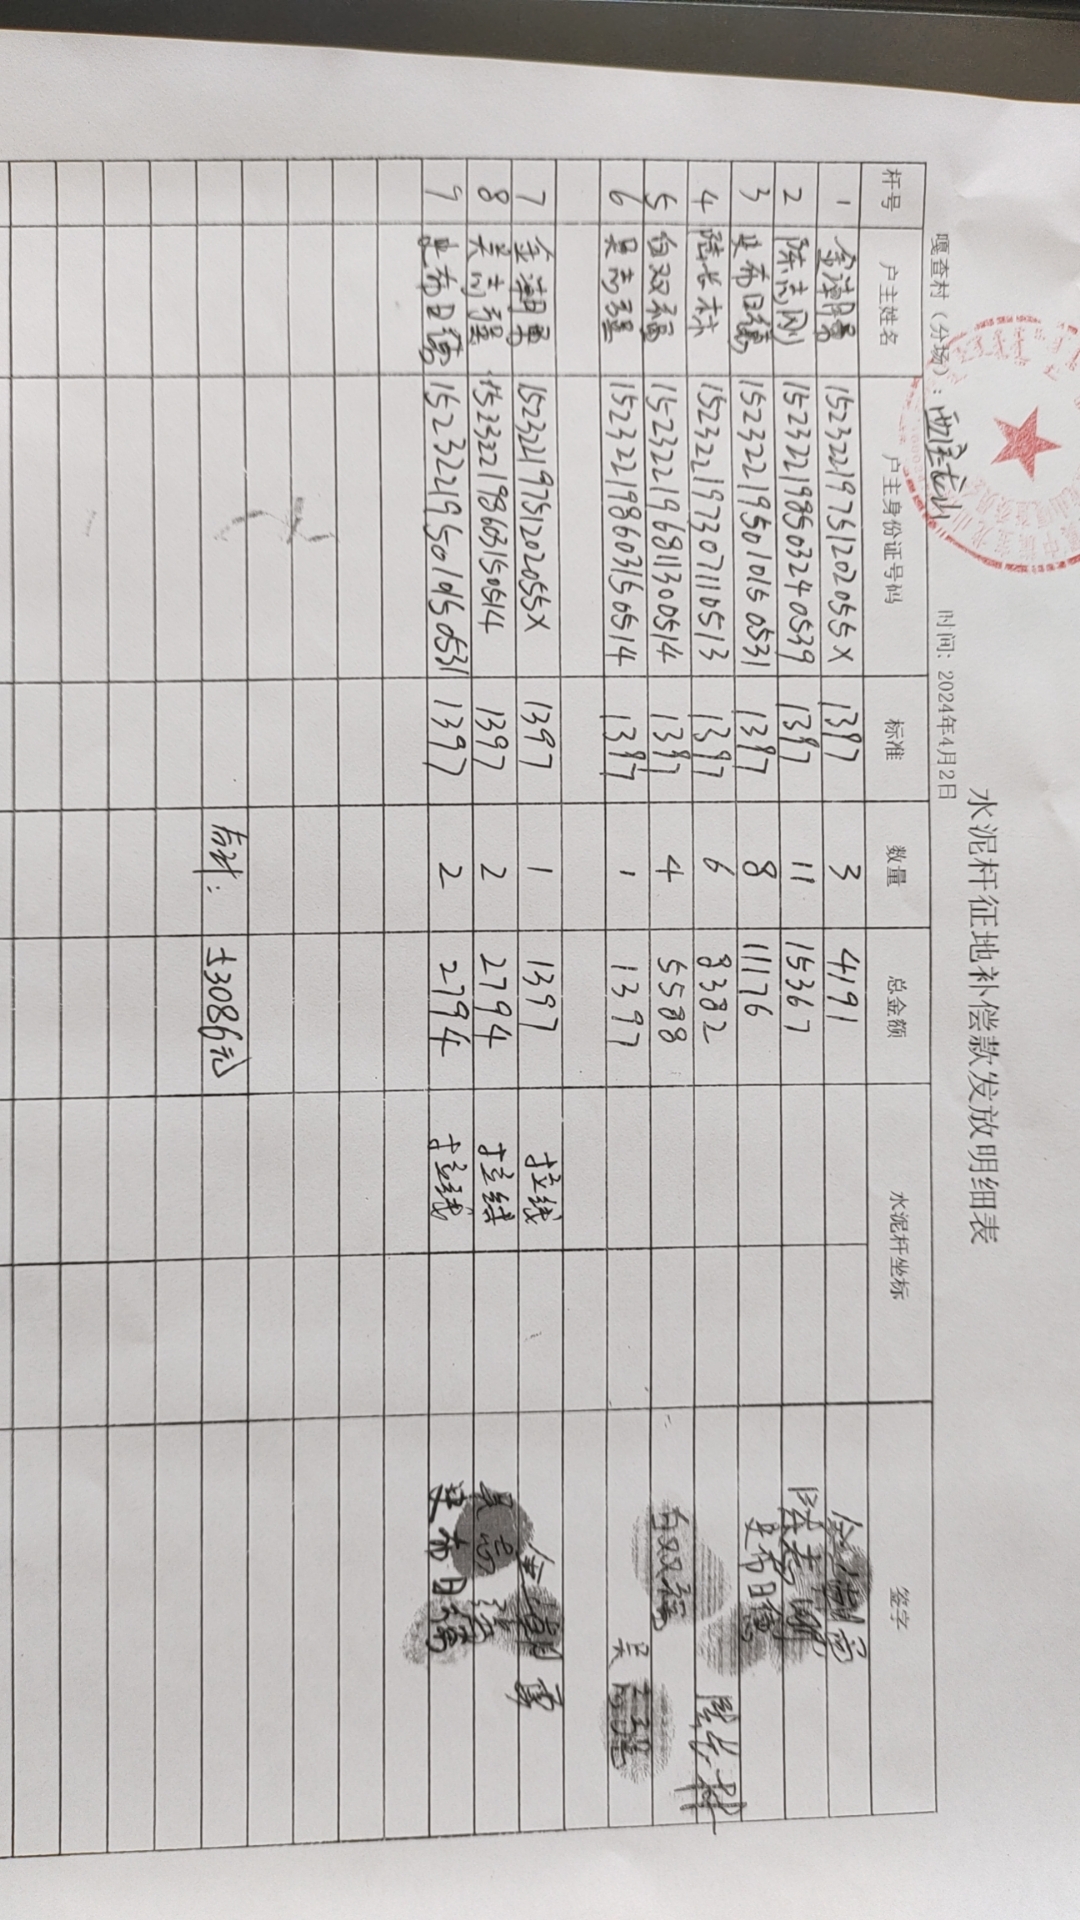 水泥杆征地补偿款发放明细表
嘎查村（分场）： 时间：2024年4月2日
杆号 户主姓名 户主身份证号码 标准 数量 总金额 水泥杆坐标 签字
1 15232219751202055X 1397 3 4191
2 陈志刚 152322198503240539 1397 11 15367 陈志刚
3 史布日德 152322195010150531 1397 8 11176 史布日德
4 陆长林 152322197307110513 1397 6 8382 陆长林
5 白双福 152322196811300514 1397 4 5588 白双福
6 吴志强 152322198603150514 1397 1 1397 吴志强
7 15232219751202055X 1397 1 1397 拉线
8 吴志强 152322198603150514 1397 2 2794 拉线 吴志强
9 史布日德 152322195010150531 1397 2 2794 拉线 史布日德
合计： 53086元